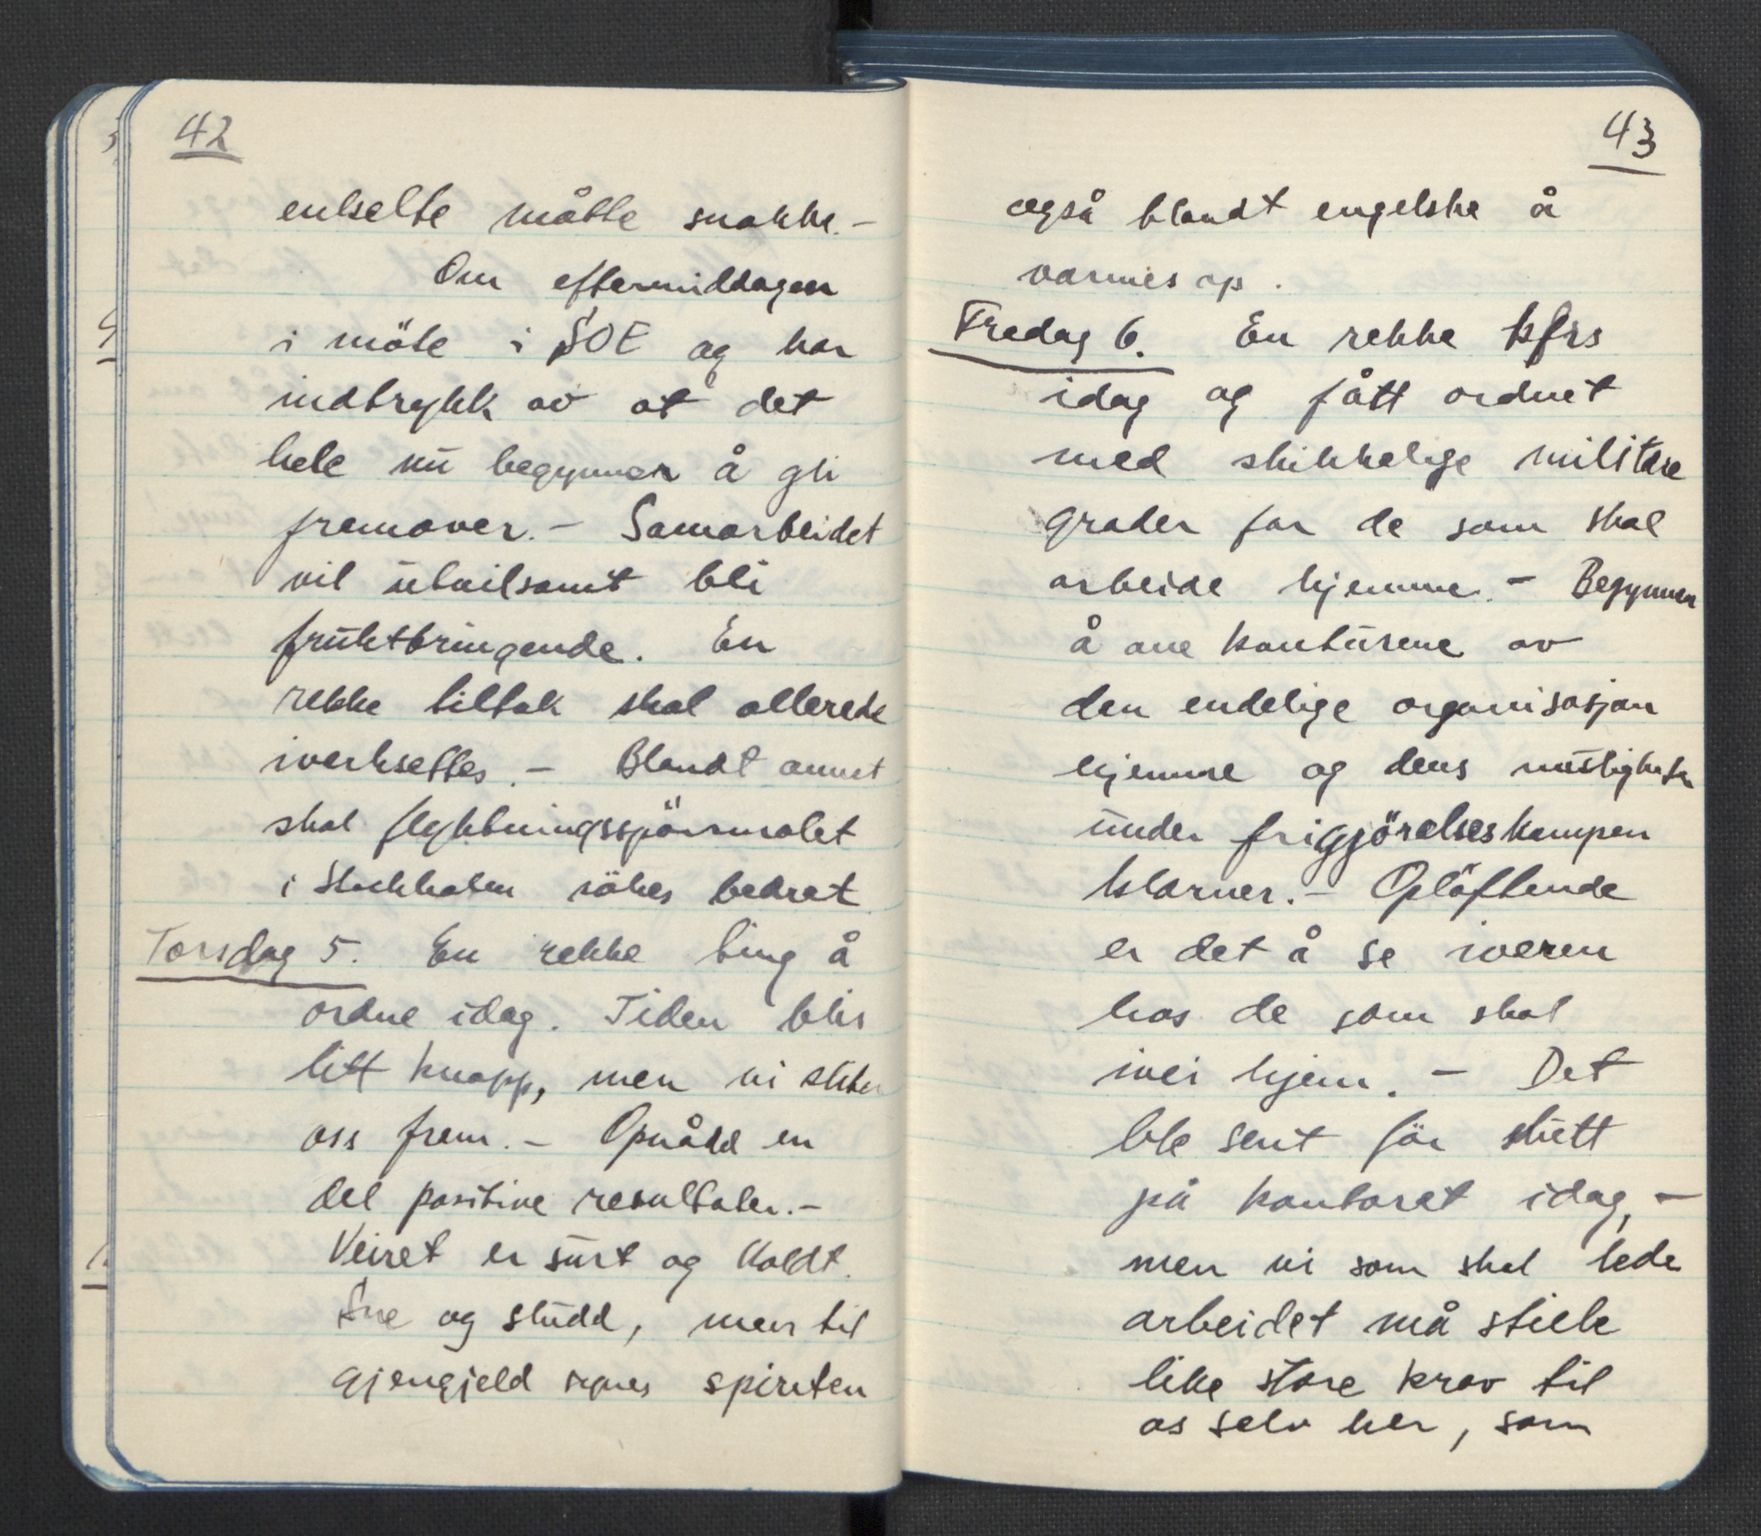 42
enkelte måtte snakke. -
Om eftermiddagen
i möte i SOE og har
indtrykk av at det
hele nu begynner å gli
fremover. - Samarbeidet
vil utvilsomt bli
fruktbringende. En
rekke tiltak skal allerede
iverksettes. - Blandt annet
skal flyktningsspörsmalet
i Stockholm sökes bedret
Torsdag 5. En rekke ting å
ordne idag. Tiden blir
litt knapp, men vi
oss frem. - Opnådd en
del positive resultater. -
Veiret er surt og koldt.
Sne og sludd, men til
gjengjeld synes spiriten
43
også blandt engelske å
varmes op.
Fredag 6. En rekke kfrs
idag og fått ordnet
med skikkelige militære
grader for de som skal
arbeide hjemme. - Begynner
å ane konturene av
den endelige organisasjon
hjemme og dens muligheter
under frigjörelseskampen
klarner. - Oplöftende
er det å se iveren
hos de som skal
ivei hjem. - Det
ble sent för slutt
på kontoret idag, -
men vi som skal lede
arbeidet må stille
like store krav til
os selv her, som